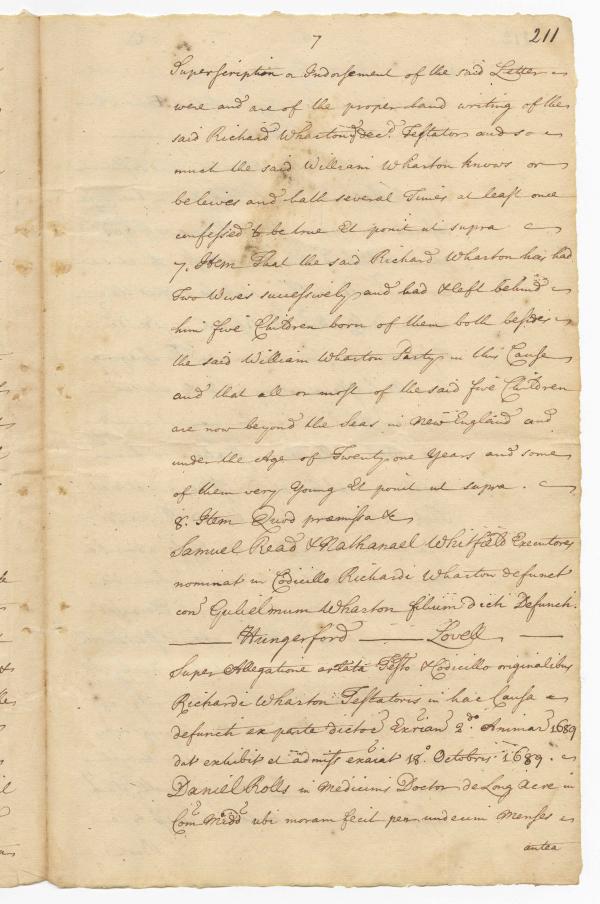 7
211
Superscription or Indorsement of the said Letter
were and are of the proper hand writing of the
said Richard Wharton ye decd Testator and so
much the said William Wharton knows or
beleives and hath several Times at least once
confessed to be true Et ponit ut supra
7. Item That the said Richard Wharton has had
Two Wives successively and had & left behind
him five Children born of them both besides
the said William Wharton Party in this Cause
and that all or most of the said five Children
are now beyond the Seas in New England and
under the Age of Twenty one Years and some
of them very Young Et ponit ut supra.
8. Item Quod præmissa &c
Samuel Read & Nathanael Whitfield Executores
nominat in Codicillo Richardi Wharton defunct
con Gulielmum Wharton filium dicti Defuncti.
Hungerford Lovell
Super Allegatione Testo & Codicillo originalibus
Richardi Wharton Testatoris in hac Causa
defuncti ex parte dictoe 2do Animar 1689
dat exhibit et admiss 18o Octobris 1689.
Daniel Rolls in Medicinis Doctor de Long Acre in
Com Midd ubi moram fecit per undecim Menses
antea